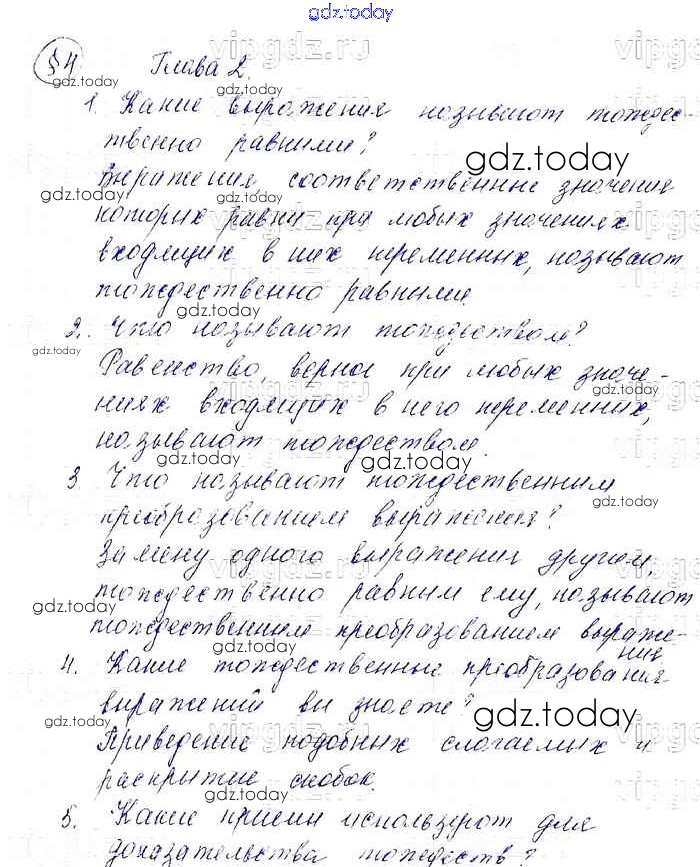 gdz.today
§4 Глава 2.
1. Какие выражения называют тождес-
твенно равными?
Выражения, соответственные значения
которых равны при любых значениях
входящих в них переменных, называют
тождественно равными.
2. Что называют тождеством?
Равенство, верное при любых значе-
ниях входящих в него переменных,
называют тождеством.
3. Что называют тождественным
преобразованием выражения?
Замену одного выражения другим,
тождественно равным ему, называют
тождественным преобразованием выраже-
ния
4. Какие тождественные преобразования
выражений вы знаете?
Приведение подобных слагаемых и
раскрытие скобок.
5. Какие приёмы используют для
доказательства тождеств?